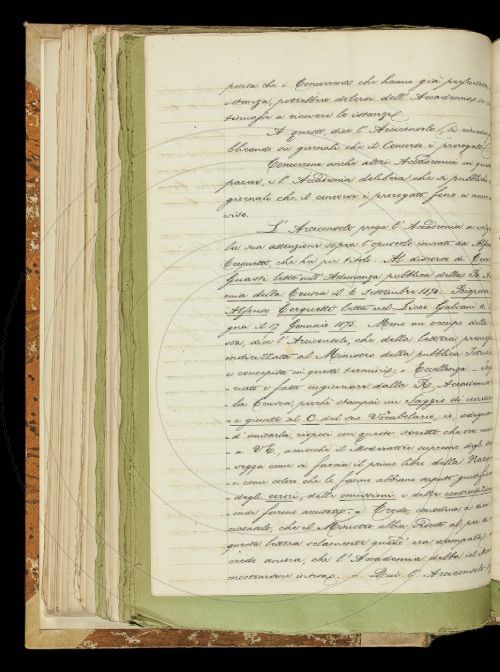 porta che i Concorrenti che hanno già presentato
istanza, potrebbero dolersi dell'Accademia se
tinuasse a ricevere le istanze.
A questo, dice l'Arciconsolo, si
blicando sui giornali che il Concorso è prorogato.
Concorrono anche altri Accademici in
parere, e l'Accademia delibera che si pubblichi
giornali che il concorso è prorogato fino a nuovo
viso.
L'Arciconsolo prega l'Accademia a
la sua attenzione sopra l'opuscolo inviato da
Cerquetti, che ha per titolo: Al discorso di
Guasti letto nell'Adunanza pubblica della R.
mia della Crusca il 6 Settembre 1874. Risposta
Alfonso Cerquetti letta nel Liceo Galvani di
gna il 17 Gennaio 1875. Meno mi occupo della
sta, dice l'Arciconsolo, che della lettera
indirizzata al Ministro della pubblica
e concepita in questi termini: "Eccellenza -
"riato e fatto ingiuriare dalla R. Accademia
"la Crusca perchè stampai un Saggio di
"e giunte al C. del suo Vocabolario, io,
"d'imitarla, risposi con questo scritto che
"a V.E., acciocchè il Moderatore supremo degli
"vegga come si faccia il primo libro della
"e come coloro che lo fanno abbiano saputo
"degli errori, delle omissioni e delle contradizioni
"onde furono accusati". Credo, continua
ciconsolo, che il Ministro abbia
questa lettera solamente quando era stampata,
credo ancora, che l'Accademia debba
mostrarsene Qui l'Arciconsolo